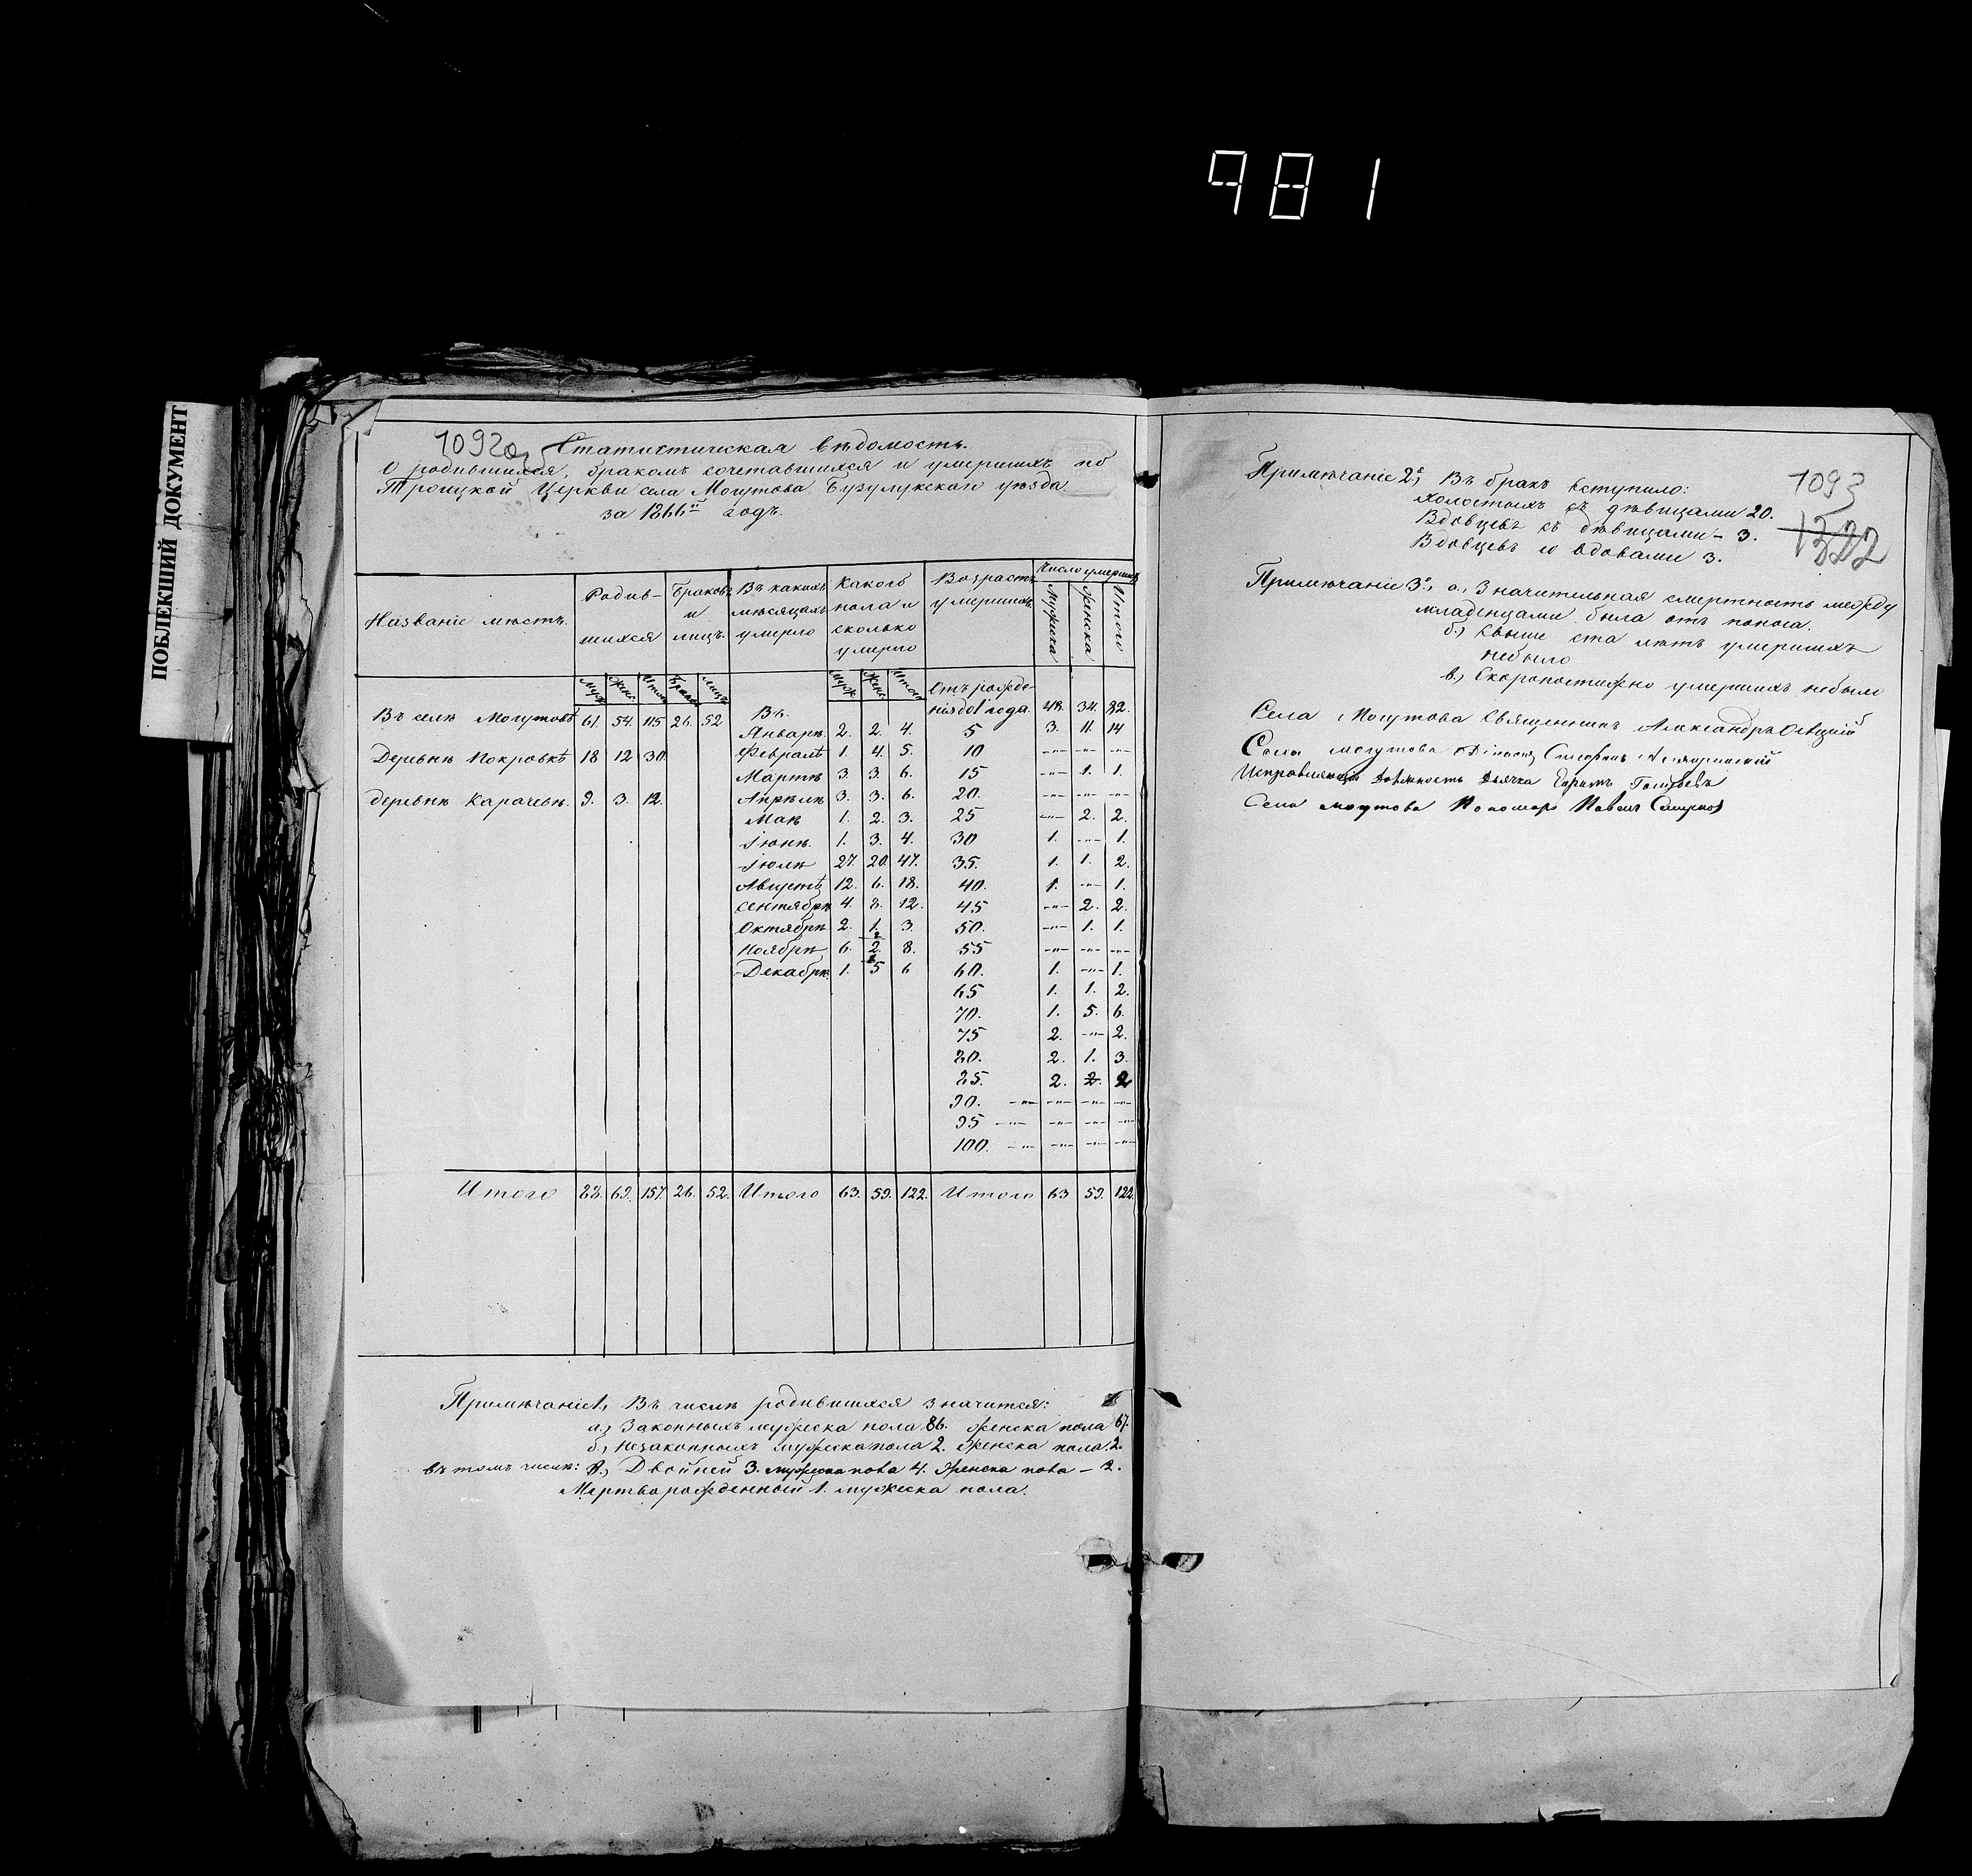 981
ПОБЛЕКШИЙ ДОКУМЕНТ
1092об
Статистическая вѣдомость.
О родившихся, бракомъ сочетавшихся и умершихъ по
Троицкой Церкви села Могутова Бузулукскаго уѣзда.
за 1866й годъ.
Названіе мѣстъ. Родив-шихся Браковъ и лицъ. Въ какихъ мѣсяцахъ умерло Какого пола и сколько умерло Возрастъ умершихъ. Число умершихъ
Мужеска Женска Итого
Муж. Женс. Итого Браков. Лицъ Муж. Женс. Итого
Въ селѣ Могутовѣ 61. 54. 115 26. 52
Деревнѣ Покровкѣ 18 12 30.
Деревнѣ Карачевѣ. 9. 3. 12.
Въ.
Январѣ. 2. 2. 4.
Февралѣ 1. 4. 5.
Мартѣ 3. 3. 6.
Апрѣлѣ 3. 3. 6.
Маѣ 1. 2. 3.
Іюнѣ. 1. 3. 4.
Іюлѣ 27. 20. 47.
Августѣ 12. 6. 18.
Сентябрѣ 4. 8. 12.
Октябрѣ 2. 1. 3.
Ноябрѣ 6. 2. 8.
Декабрѣ. 1. 5 6
Отъ рожде-
нія до 1 года. 48. 34. 82.
5 3. 11. 14
10 -„- -„- -„-
15 -„- 1. 1.
20. -„- -„- -„-
25 -„- 2. 2.
30 1. -„- 1.
35. 1. 1. 2.
40. 1. -„- 1.
45 -„- 2. 2.
50. -„- 1. 1.
55 -„- -„- -„-
60. 1. -„- 1.
65 1. 1. 2.
70. 1. 5. 6.
75 2. -„- 2.
80. 2. 1. 3.
85. 2. 2
90. -„- -„- -„- -„-
95 -„- -„- -„- -„-
100. -„- -„- -„- -„-
Итого 88. 69. 157. 26. 52. Итого 63. 59. 122. Итого 63 59. 122.
Примѣчаніе 1, Въ числѣ родившихся значится:
а) Законныхъ мужеска пола 86. женска пола 67.
б) Незаконныхъ мужеска пола 2. женска пола 2.
въ томъ числѣ: в) Двойней 3. мужеска пола 4. женска пола - 2.
Мертворожденный 1. мужеска пола.
1093
1322
Примѣчаніе 2е, Въ бракъ вступило:
холостыхъ съ дѣвицами 20.
Вдовцевъ съ дѣвицами - 3.
Вдовцевъ со вдовами 3.
Примѣчаніе 3е, а, Значительная смертность между
младенцами была отъ поноса.
б) Свыше ста лѣтъ умершихъ
небыло
в) Скоропостижно умершихъ небыло
Села Могутова Священникъ Александръ
Села Могутова Діаконъ
Исправляющій Должность Дьячка
Села Могутова Пономарь Павелъ Смирнов